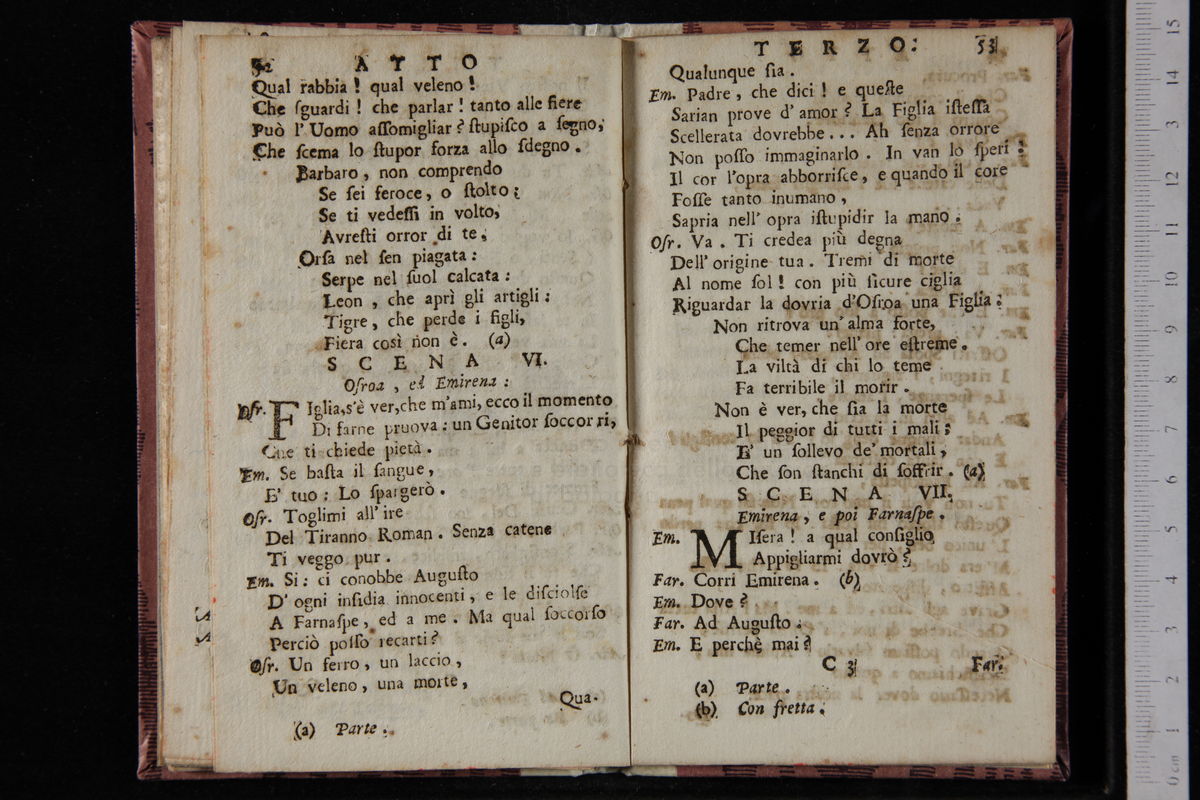 52 ATTO
Qual rabbia! qual veleno!
Che ſguardi! che parlar! tanto alle fiere
Può l'Uomo aſſomigliar? ſtupiſco a ſegno,
Che ſcema lo ſtupor forza allo ſdegno.
Barbaro, non comprendo
Se ſei feroce, o ſtolto;
Se ti vedeſſi in volto,
Avreſti orror di te.
Orſa nel ſen piagata:
Serpe nel ſuol calcata:
Leon, che aprì gli artigli:
Tigre, che perde i figli,
Fiera così non è. (a)
SCENA VI.
Oſroa, ed Emirena:
Oſr. FIglia,s'è ver,che m'ami, ecco il momento
Di farne pruova: un Genitor ſoccorri,
Che ti chiede pietà.
Em. Se baſta il ſangue,
E' tuo: Lo ſpargerò.
Oſr. Toglimi all'ire
Del Tiranno Roman. Senza catene
Ti veggo pur.
Em. Si: ci conobbe Auguſto
D'ogni inſidia innocenti, e le diſciolſe
A Farnaſpe, ed a me. Ma qual ſoccorſo
Perciò poſſo recarti?
Oſr. Un ferro, un laccio,
Un veleno, una morte,
Qua-
(a) Parte.
TERZO. 53
Qualunque ſia.
Em. Padre, che dici! e queſte
Sarian prove d'amor? La Figlia iſteſſa
Scellerata dovrebbe... Ah ſenza orrore
Non poſſo immaginarlo. In van lo ſperi:
Il cor l'opra abborriſce, e quando il core
Foſſe tanto inumano,
Sapria nell'opra iſtupidir la mano.
Oſr. Va. Ti credea più degna
Dell'origine tua. Tremi di morte
Al nome ſol! con più ſicure ciglia
Riguardar la dovria d'Oſroa una Figlia:
Non ritrova un'alma forte,
Che temer nell'ore eſtreme.
La viltà di chi lo teme
Fa terribile il morir.
Non è ver, che ſia la morte
Il peggior di tutti i mali;
E' un ſollevo de'mortali,
Che ſon ſtanchi di ſoffrir. (a)
SCENA VII.
Emirena, e poi Farnaſpe.
Em. MIſera! a qual conſiglio
Appigliarmi dovrò?
Far. Corri Emirena. (b)
Em. Dove?
Far. Ad Auguſto.
Em. E perchè mai?
C 3 Far.
(a) Parte.
(b) Con fretta.
15
14
13
12
11
10
9
8
7
6
5
4
3
2
1
0 cm